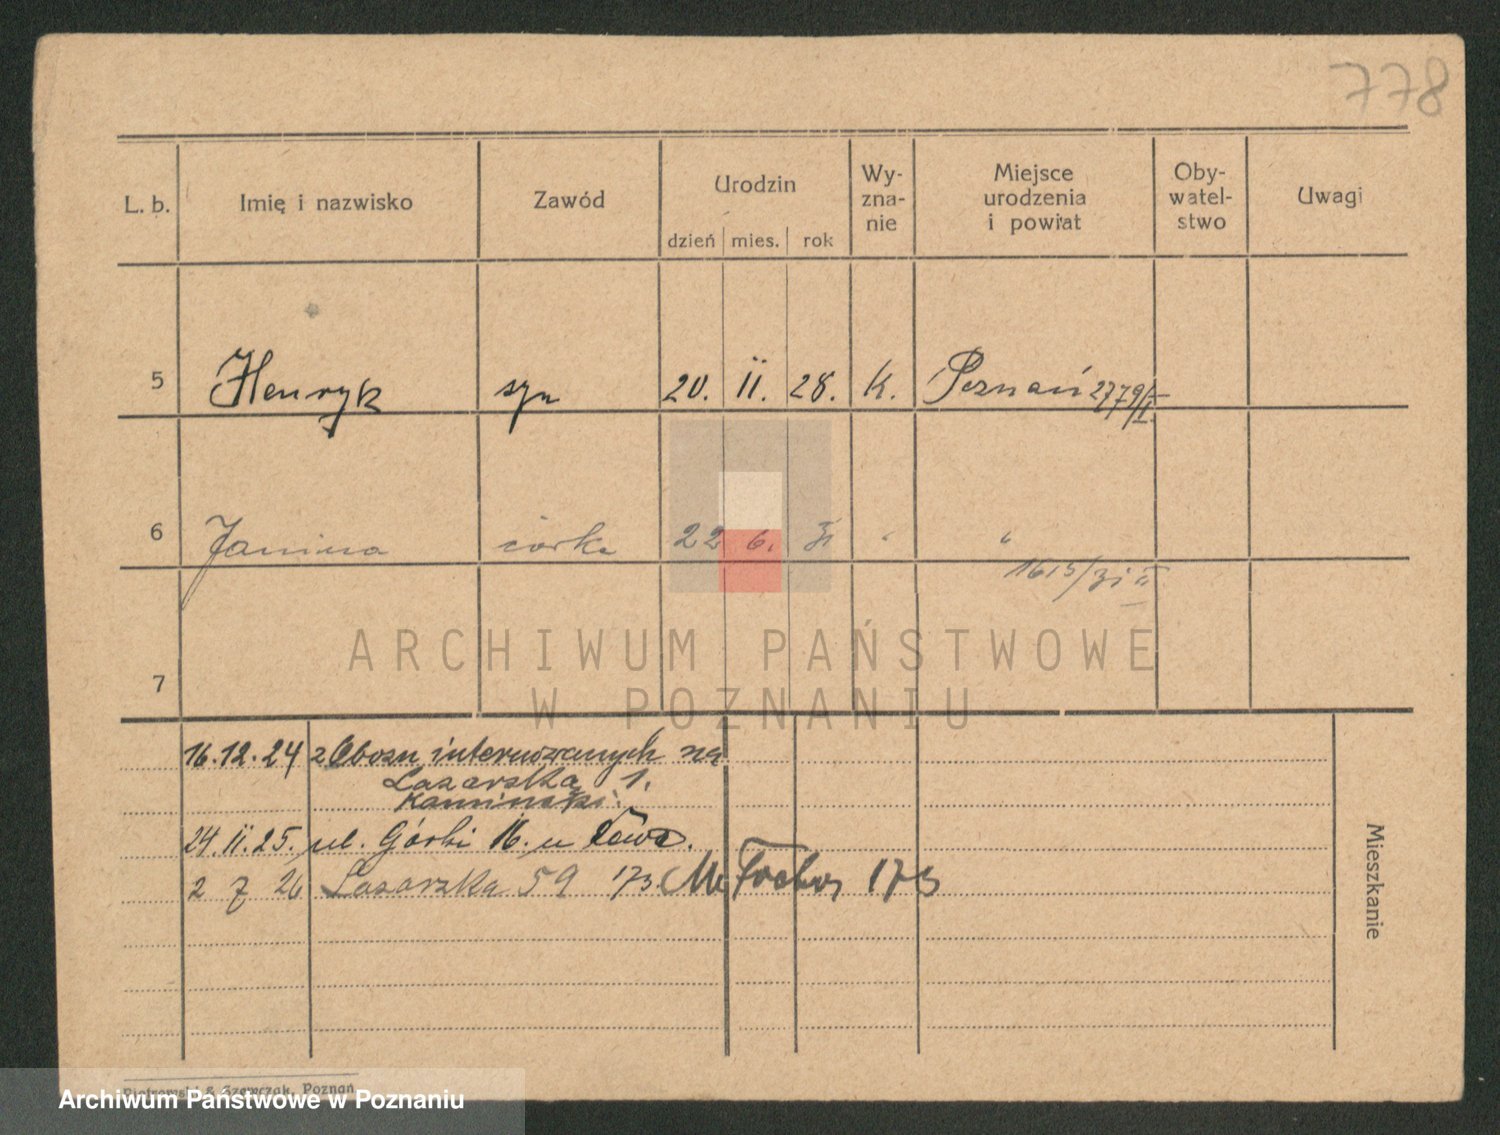 778
L. b. Imię i nazwisko Zawód Urodzin dzień mies. rok Wy-zna-nie Miejsce urodzenia i powiat Oby-watel-stwo Uwagi
5 Henryk syn 20. II. 28. K. Poznań 2779/II.
6 Janina córka 22 6. 31 " "
1615/31 II
7
ARCHIWUM PAŃSTWOWE
W POZNANIU
16.12.24 z Obozu internowanych na
Łazarska 1.
Kamiński.
24. II. 25. ul. Górki 16. u
2 7 26 Łazarska 59 173 M. Focha 173
Mieszkanie
Piotrowski & Szewczak, Poznań
Archiwum Państwowe w Poznaniu